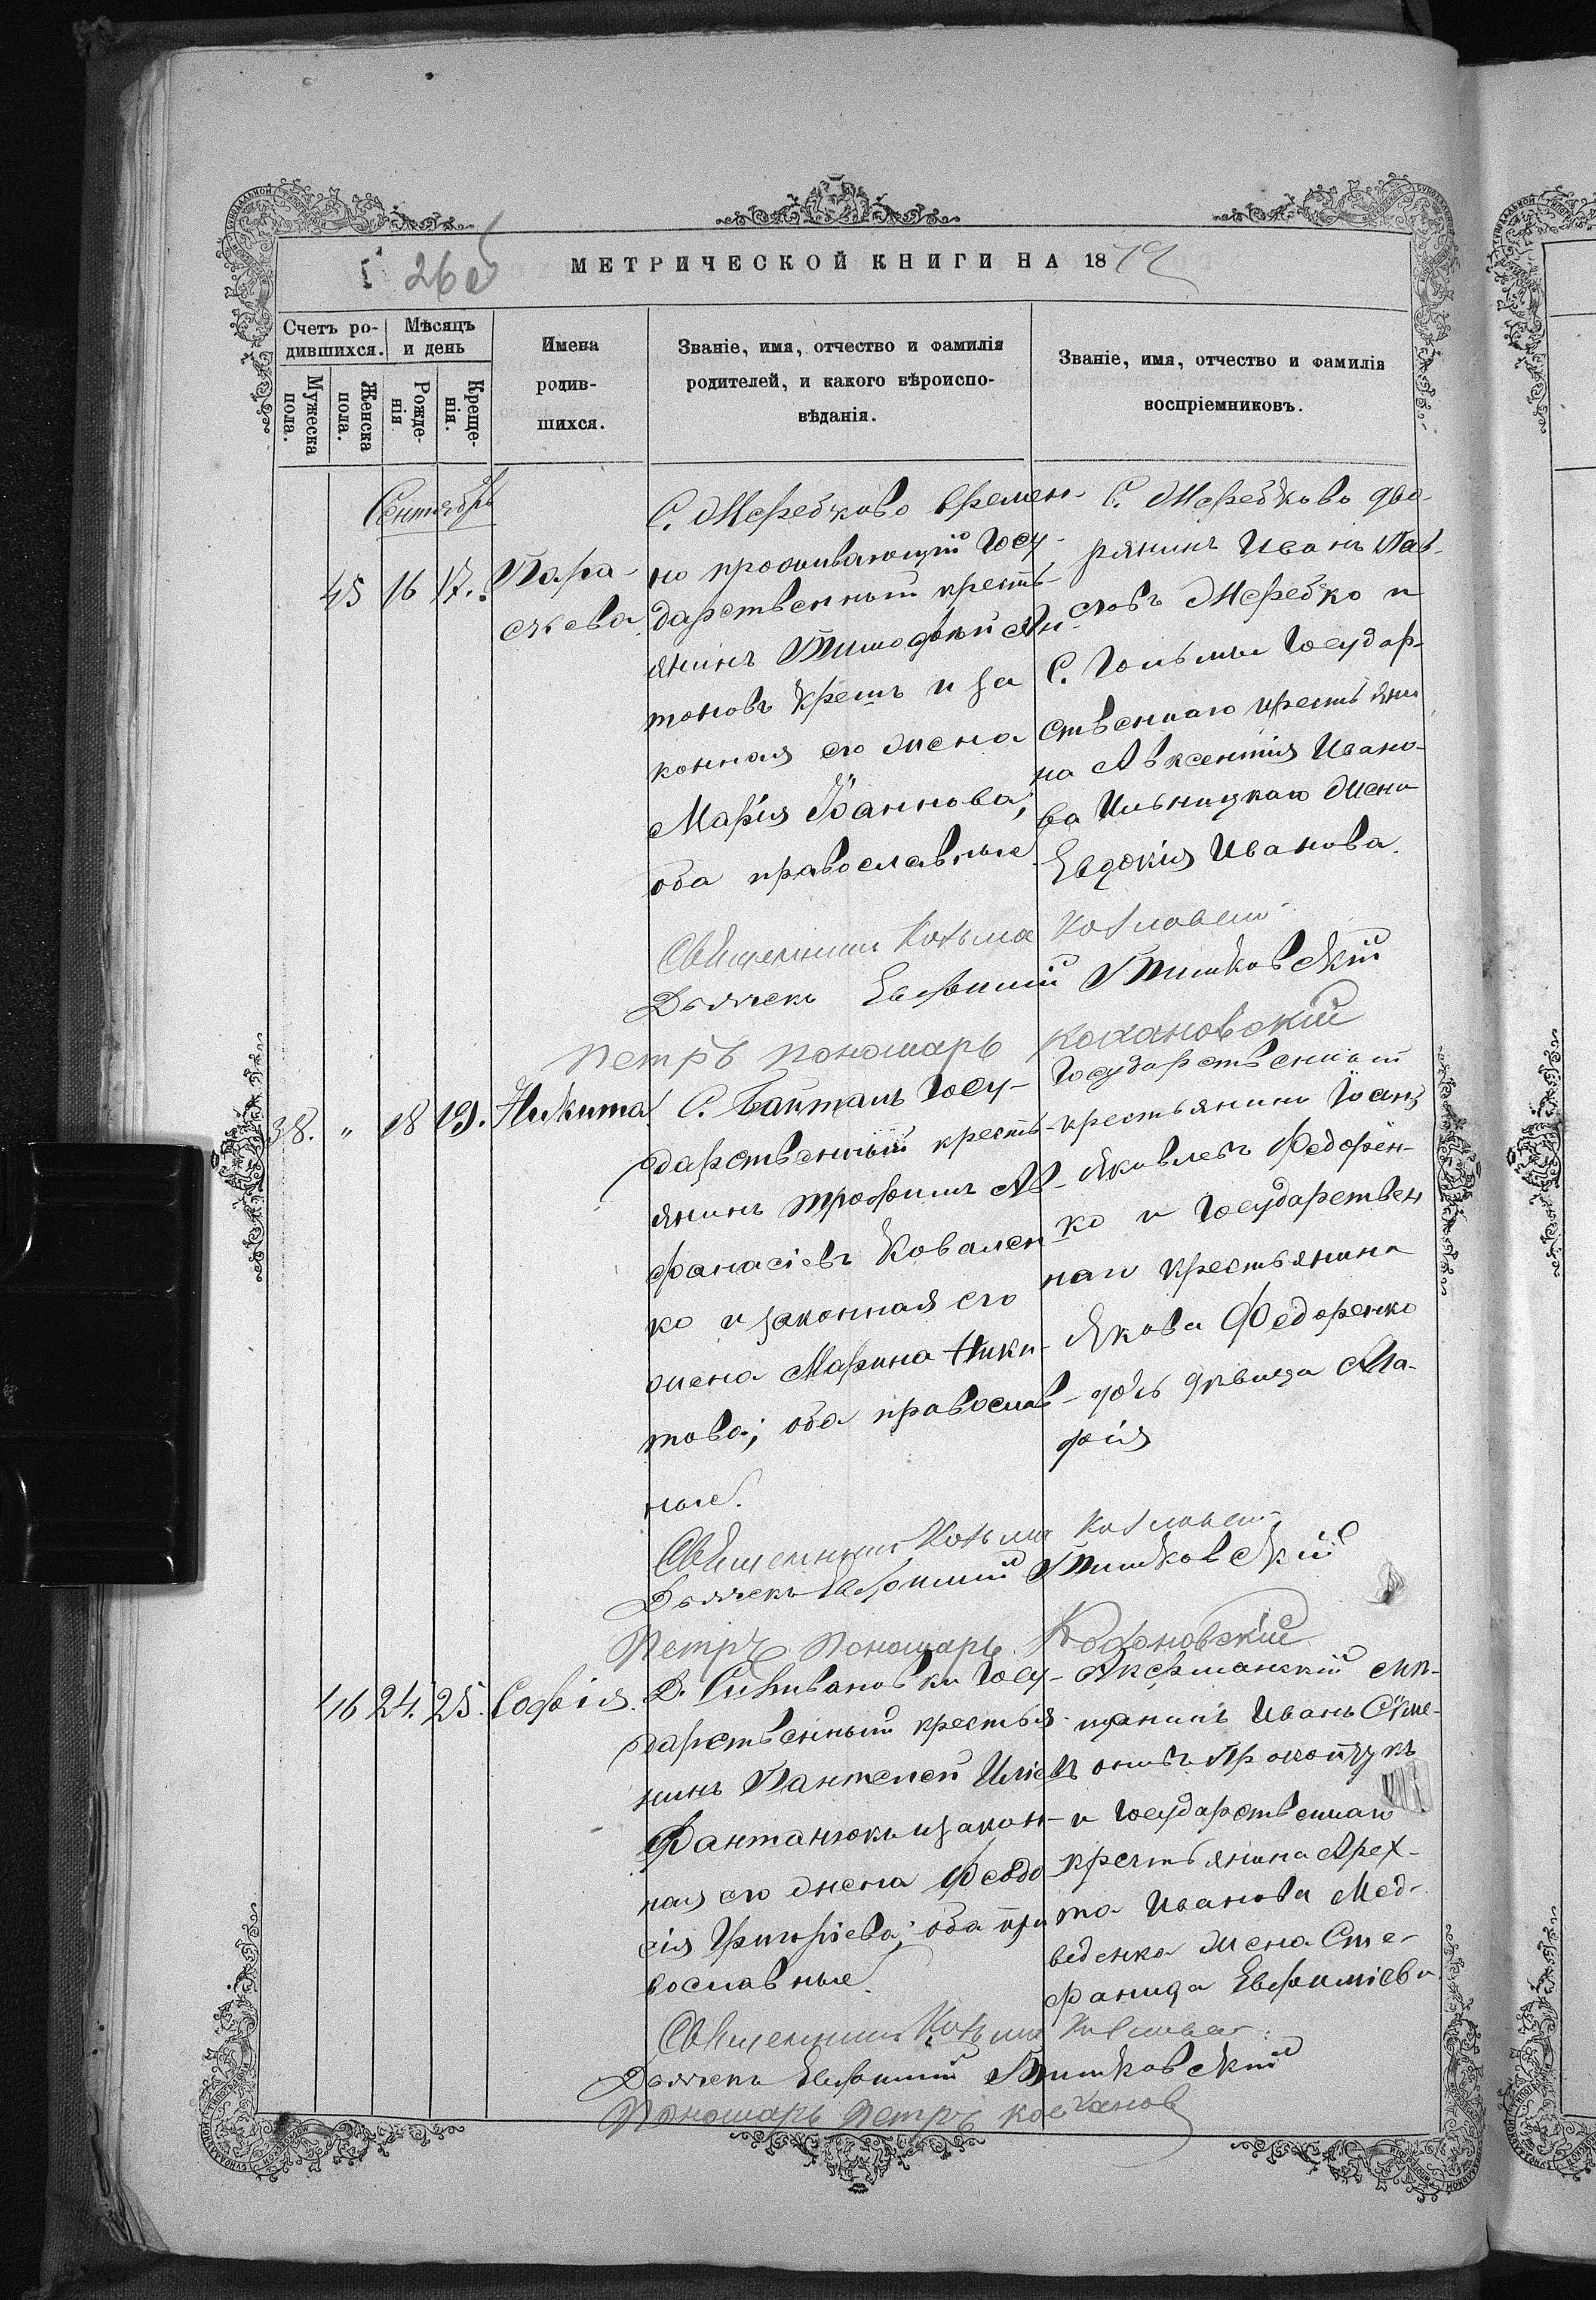 26 об
МЕТРИЧЕСКОЙ КНИГИ НА 1872
Счетъ ро-
дившихся.
Мѣсяцъ
и день
Мужеска
пола.
Женска
пола.
Рожде-
нія
Креще-
нія.
Имена
родив-
шихся.
Званіе, имя, отчество и фамилія
родителей, и какого вѣроиспо-
вѣданія.
Званіе, имя, отчество и фамилія
воспріемниковъ.
Сентябрь
45 16 17. Пара-
скева
С. Жеребково времен-
но проживающій Госу-
дарственный кресть-
янинъ Тимофей Ан-
тоновъ и за
конная его жена
Марія Іоаннова;
оба православные
С. Жеребково дво-
рянинъ Иванъ Пав-
ловъ Жеребко и
С. Государ-
ственнаго крестьяни
на Авксентія Ивано-
ва Ильницкаго жена
Евдокія Иванова.
Священникъ Козьма Козловскій
Дьячекъ Евфимій Тишковскій
Петръ пономарь Кохановскій
38. " 18 19. Никита
С. Байталъ Госу-
дарственный кресть-
янинъ Трофимъ Аѳ-
фанасіевъ Ковален
ко и законная его
жена Марина Ники-
това; оба православ-
ные.
Государственный
крестьянинъ Іоаннъ
Яковлевъ Федорен-
ко и Государствен
наго крестьянина
Якова Федоренко
дочь дѣвица Ма-
рія
Священникъ Козьма Козловскій
Дьячекъ Евфимій Тишковскій
Петръ Пономарь Кохановскій
46 24. 25. Софія.
Д. Селивановки Госу-
дарственный крестья-
нинъ Пантелей Иліевъ
Фантанюкъ и закон-
ная его жена Феодо
сія Григорієва; оба пра
вославные.
Акерманскій мѣ-
щанинъ Иванъ Симе-
оновъ Прокопчукъ
и Государственнаго
крестьянина Ареф-
та Иванова Мед-
веденка жена Сте-
фанида Евфиміева
Священникъ Козьма Козловскій
Дьячекъ Евфимій Тишковскій
Пономарь Петръ Коханов